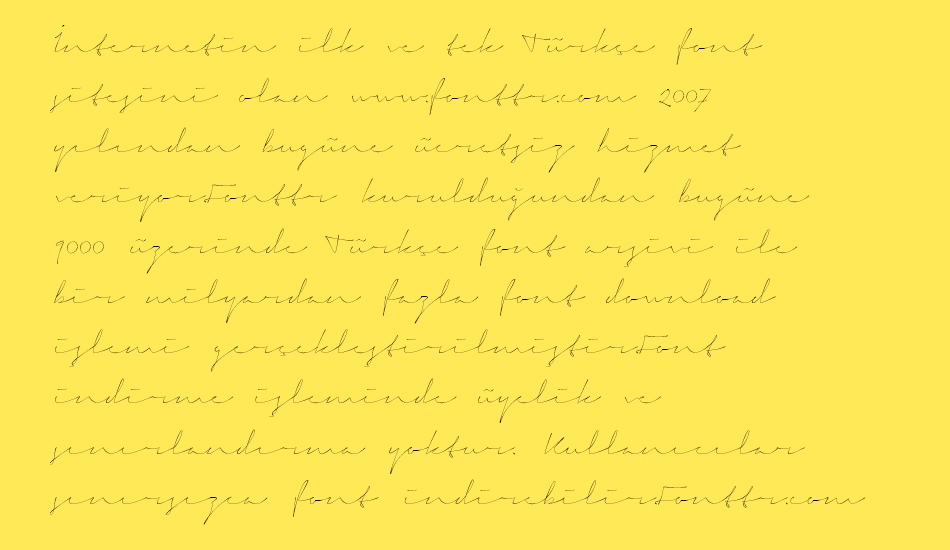 İnternetin ilk ve tek Türkçe font
sitesini olan www.fonttr.com 2007
yılından bugüne ücretsiz hizmet
veriyor.Fonttr kurulduğundan bugüne
9000 üzerinde Türkçe font arşivi ile
bir milyardan fazla font download
işlemi gerçekleştirilmiştir.Font
indirme işleminde üyelik ve
sınırlandırma yoktur. Kullanıcılar
sınırsızca font indirebilir.Fonttr.com